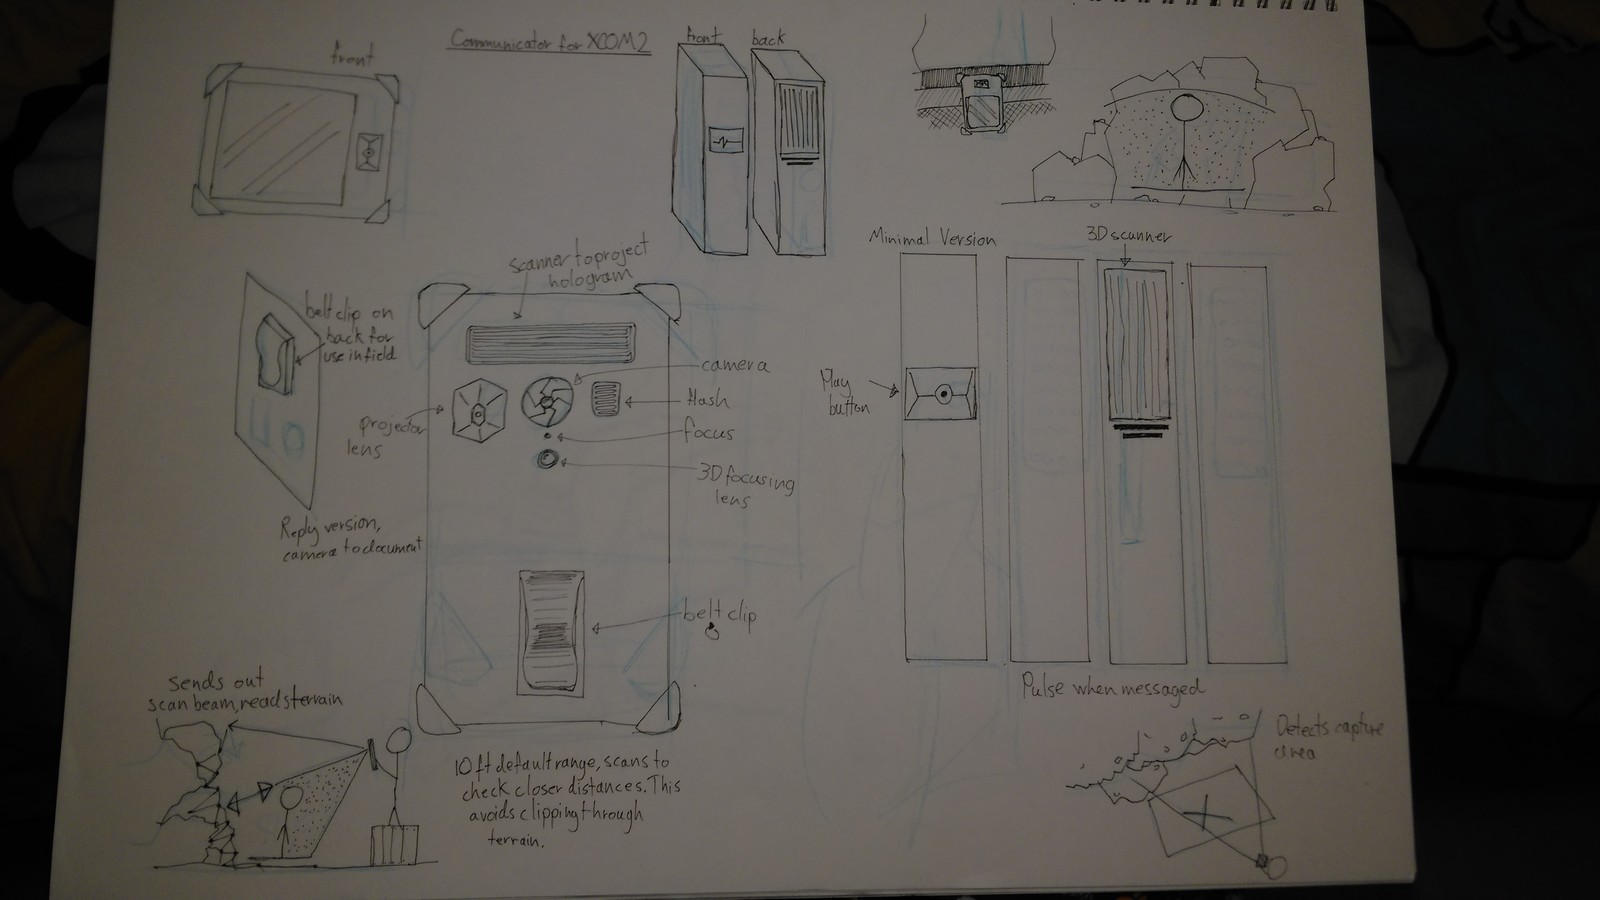 Communicator for XCOM2
front
front
back
scanner to project
hologram
belt clip on
back for
use in field
camera
flash
focus
3D focusing
lens
projector
lens
Reply version,
camera to document
belt clip
Minimal Version
3D scanner
Play
button
Pulse when messaged
sends out
scan beam, reads terrain
10 ft default range, scans to
check closer distances. This
avoids clipping through
terrain.
Detects capture
area